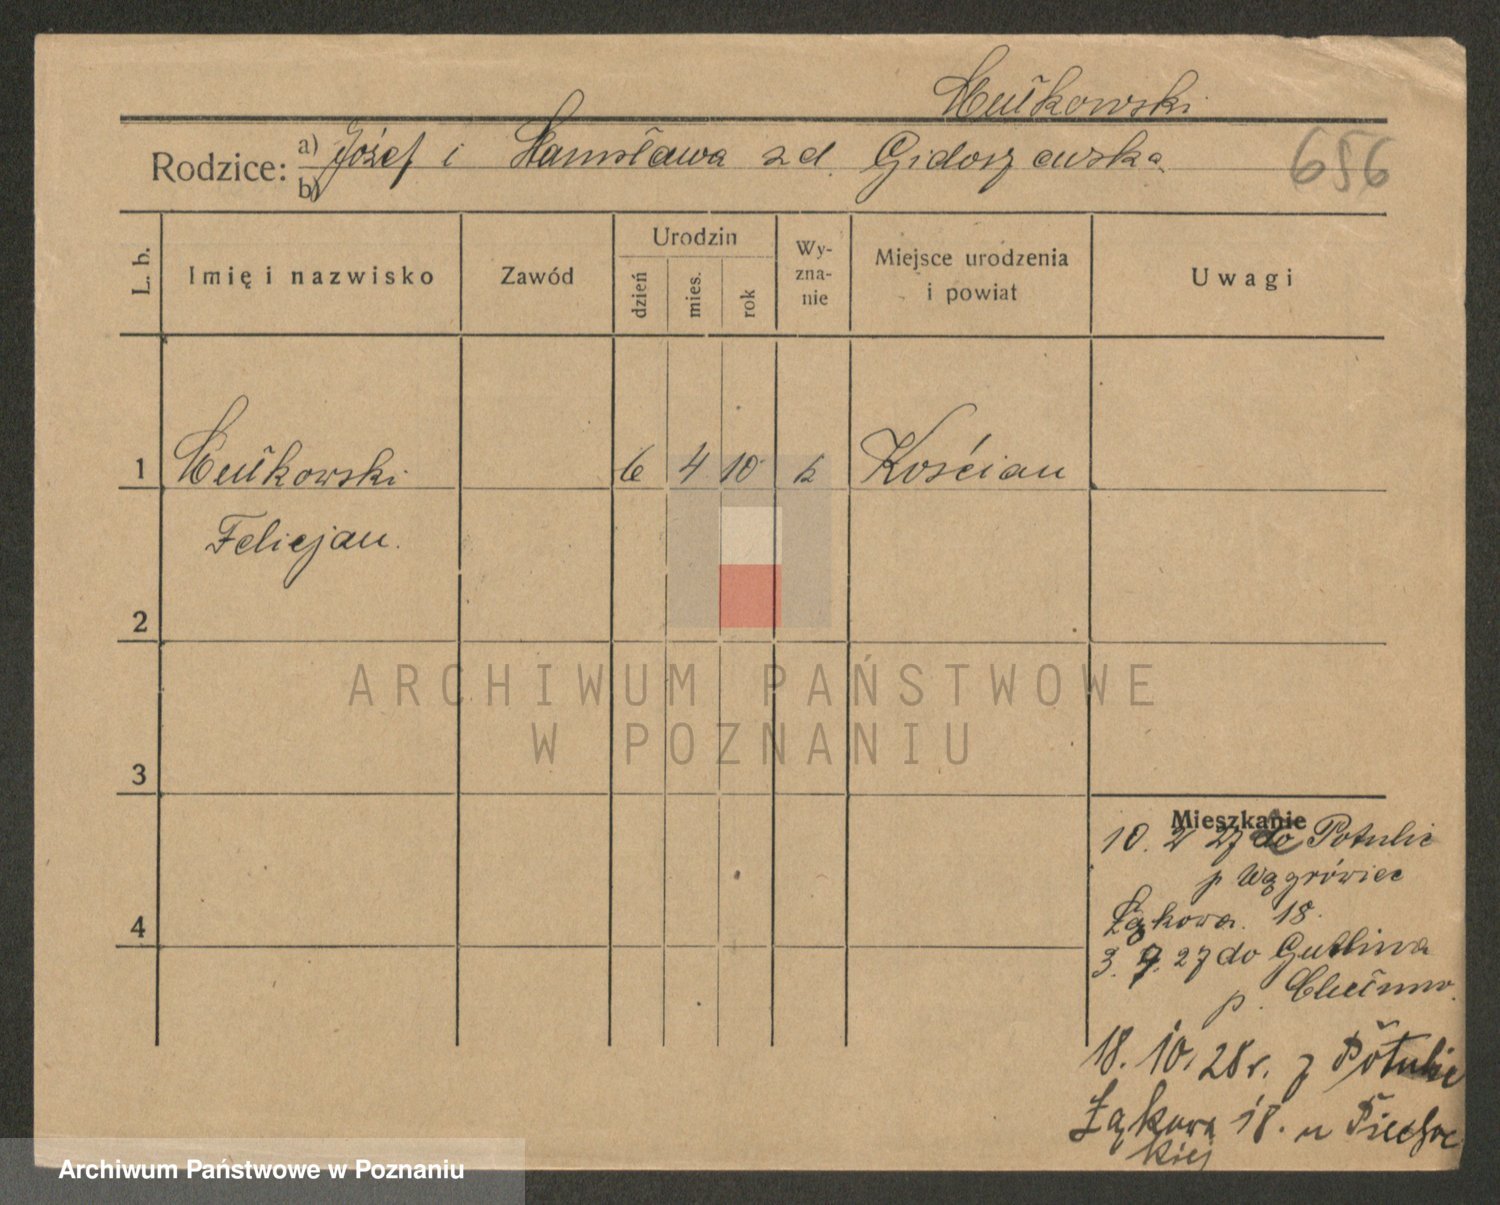 Mułkowski
Rodzice: a) Józef i Stanisława zd. Gidaszewska
b)
656
L. b.
Imię i nazwisko
Zawód
Urodzin
dzień
mies.
rok
Wy-
zna-
nie
Miejsce urodzenia
i powiat
Uwagi
1 Mułkowski 6 4 10 k Kościan
Felicjan.
2
3
4
Mieszkanie
10. 2 27 do Potulic
p Wągrówiec
Łąkowa. 18.
3. 9. 27 do
p.
18. 10. 28 r. z Potulic
Łąkowa 18. u
kiej
ARCHIWUM PAŃSTWOWE
W POZNANIU
Archiwum Państwowe w Poznaniu